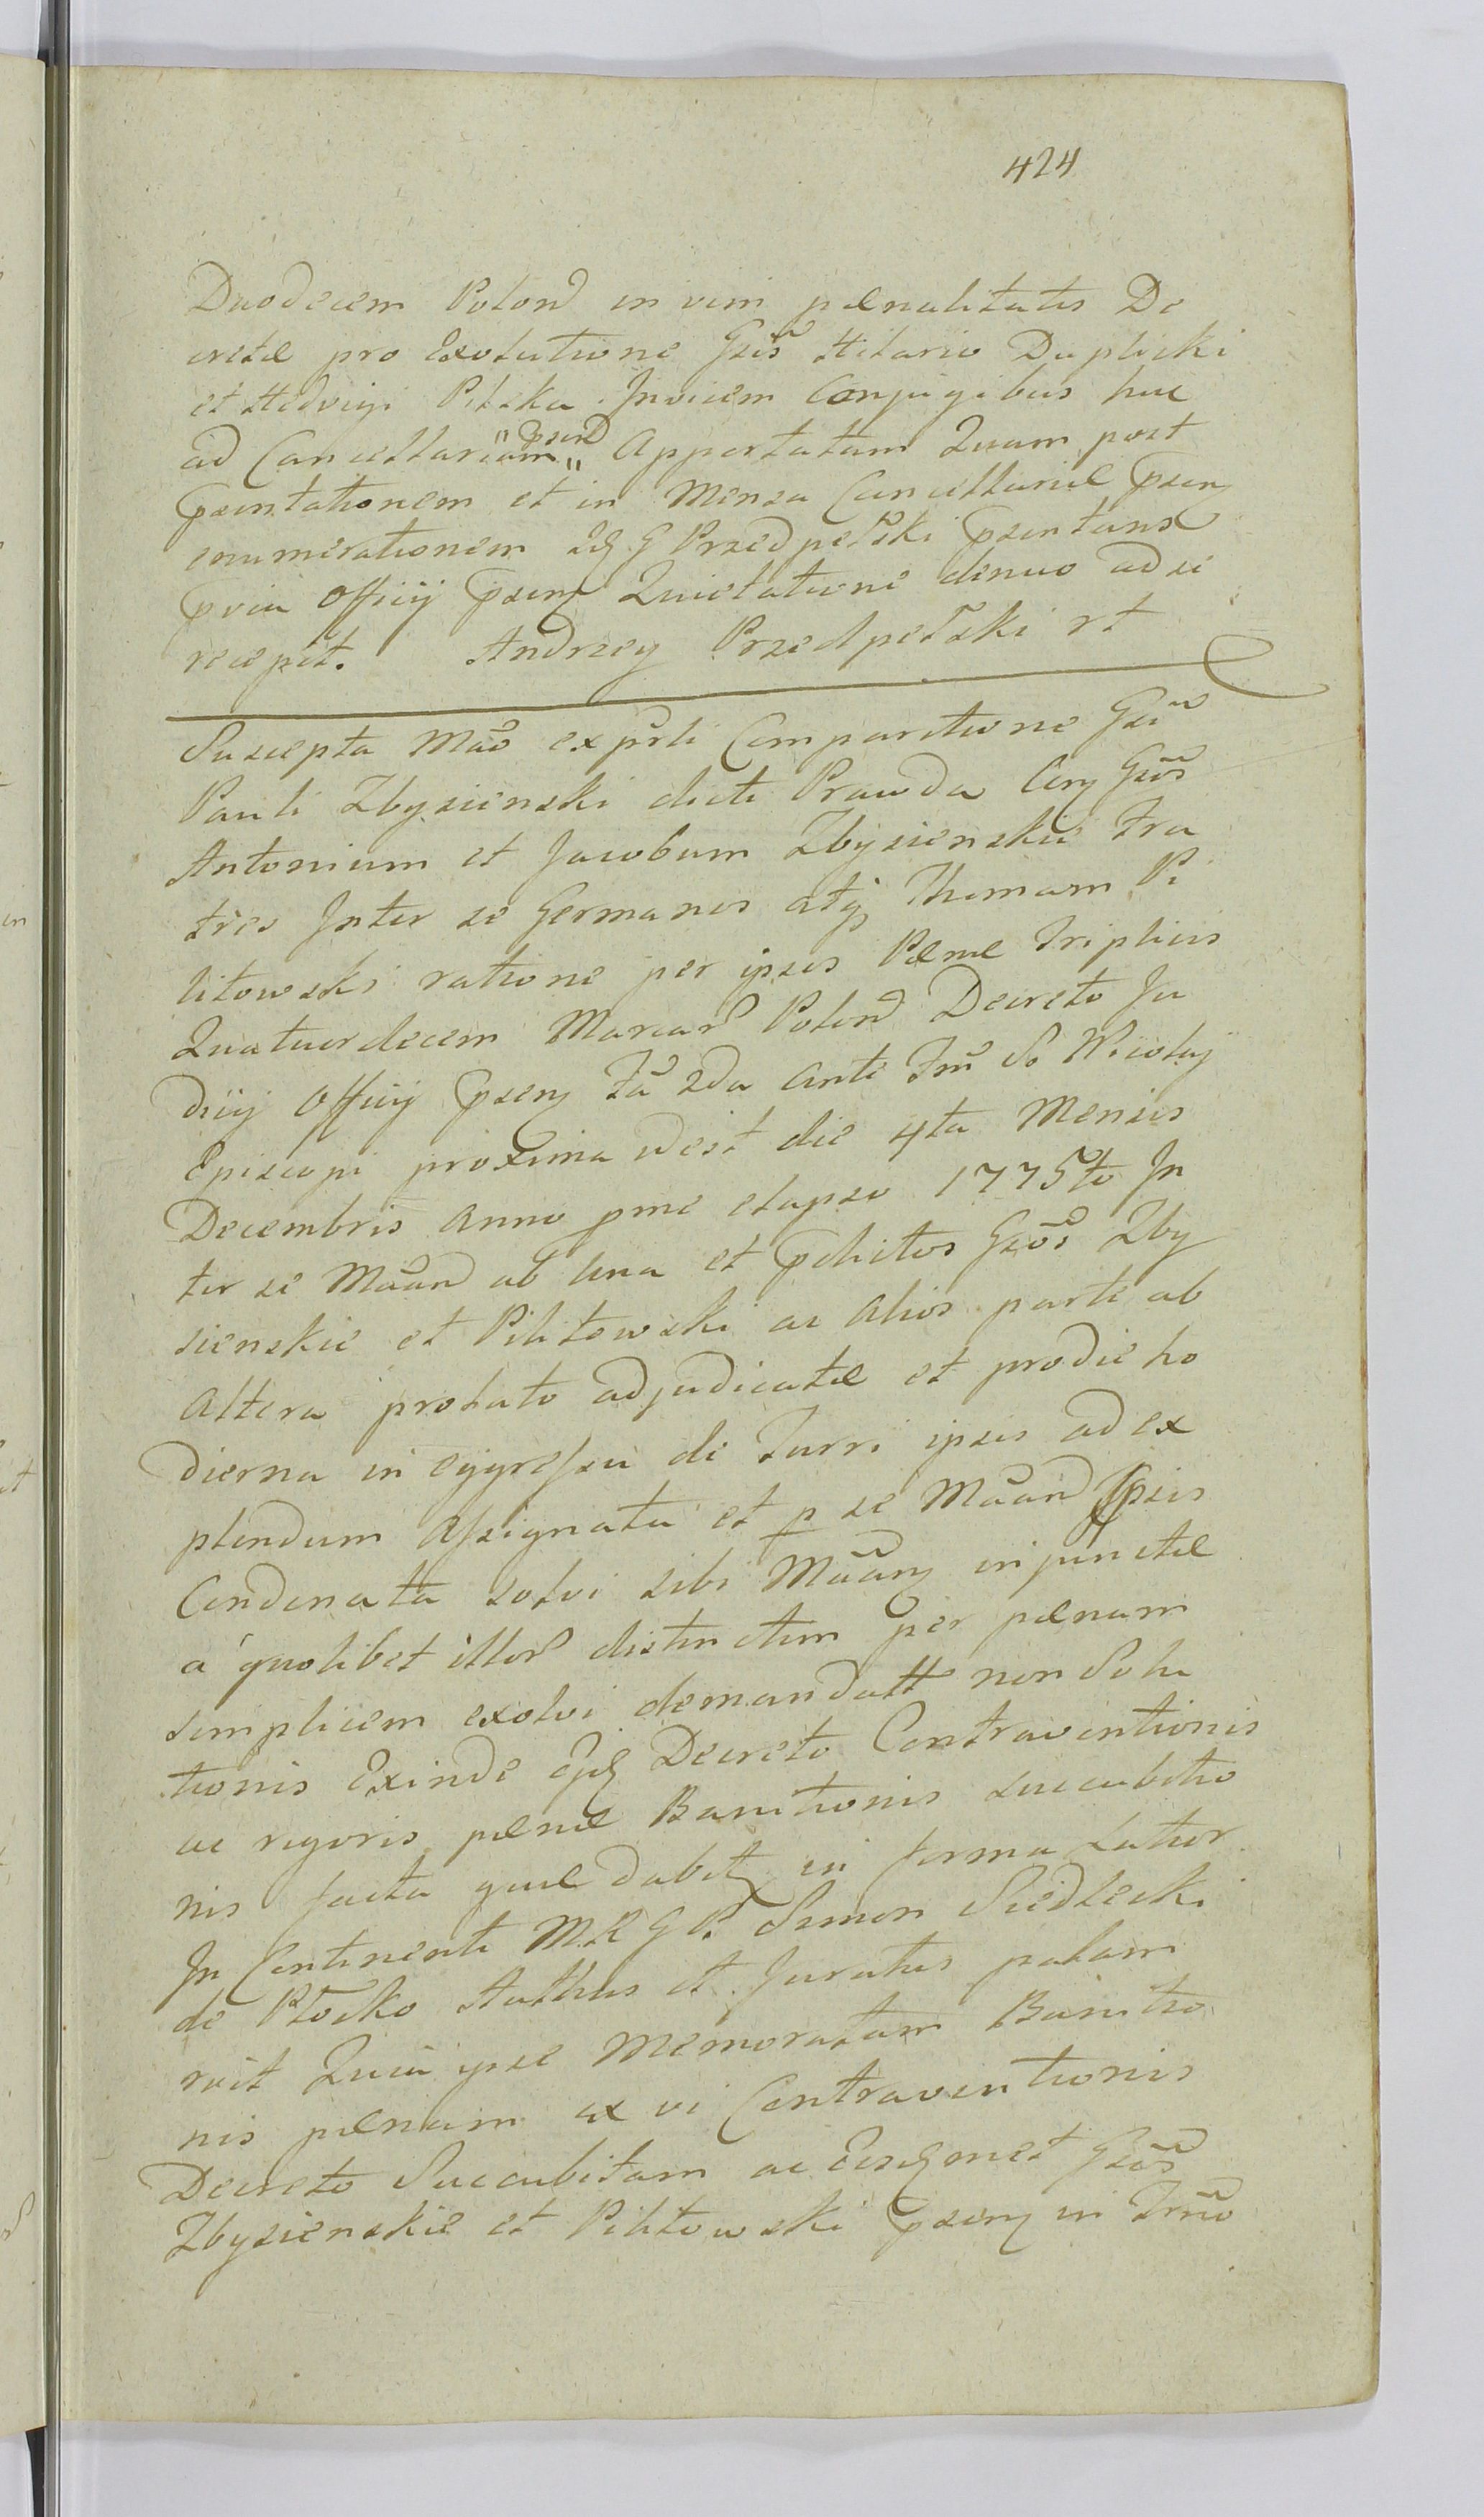 424
Duodecem Polond in vim pœnalitatis De
cretæ pro Exolutione Gsis Hilario Duplicki
et Hedvigi Pilska Invicem Conjugibus huc
ad Cancellariam "psend" Apportatam Quam post
psentationem et in Mensa Cancellariæ psens
enumerationem G Przedpełski psentans
pvia Officij psens Quietatione denuo ad se
recepit. Andrzey Przedpełski rt
Suscepta Mao ex prli Comparitione Gsi
Pauli Zbysienski dicti Prawda Con Gsos
Antonium et Jacobum Zbysienskie Fra
tres Inter se Germanos atq Thomam Pi
litowski ratione per ipsos Pœnæ Triplicis
Quatuordecem Marcar Polond Decreto Ju
dicij Officij psens fa 2da ante Fm S. Nicolaj
Episcopi proxima id est die 4ta Mensis
Decembris Anno pme elapso 1775to In
ter se Maand ab una et pdictos Gsos Zby
sienskie et Pilitowski ac Alios parte ab
Altera prolato adjudicatæ et pro die ho
dierna in eggressu de Turri ipsis ad ex
plendum Assignata et p se Maand Ipsis
Condonata solvi sibi Maans injunctæ
á quolibet illor distinctim per pœnam
simplicem exolvi demandatt non Solu
tionis Exinde Decreto Contraventionis
ac rigoris pœnæ Banitionis succubitio
nis facta quæ dabit in forma Latior
In Continenti M R G P. Simon Siedlecki
de Płocko Authus et Juratus palam
rcit Quia ipse Memoratam Banitio
nis pœnam ex vi Contraventionis
Decreto Succubitam ac Gsos
Zbysienskie et Pilitowski psens in Trno